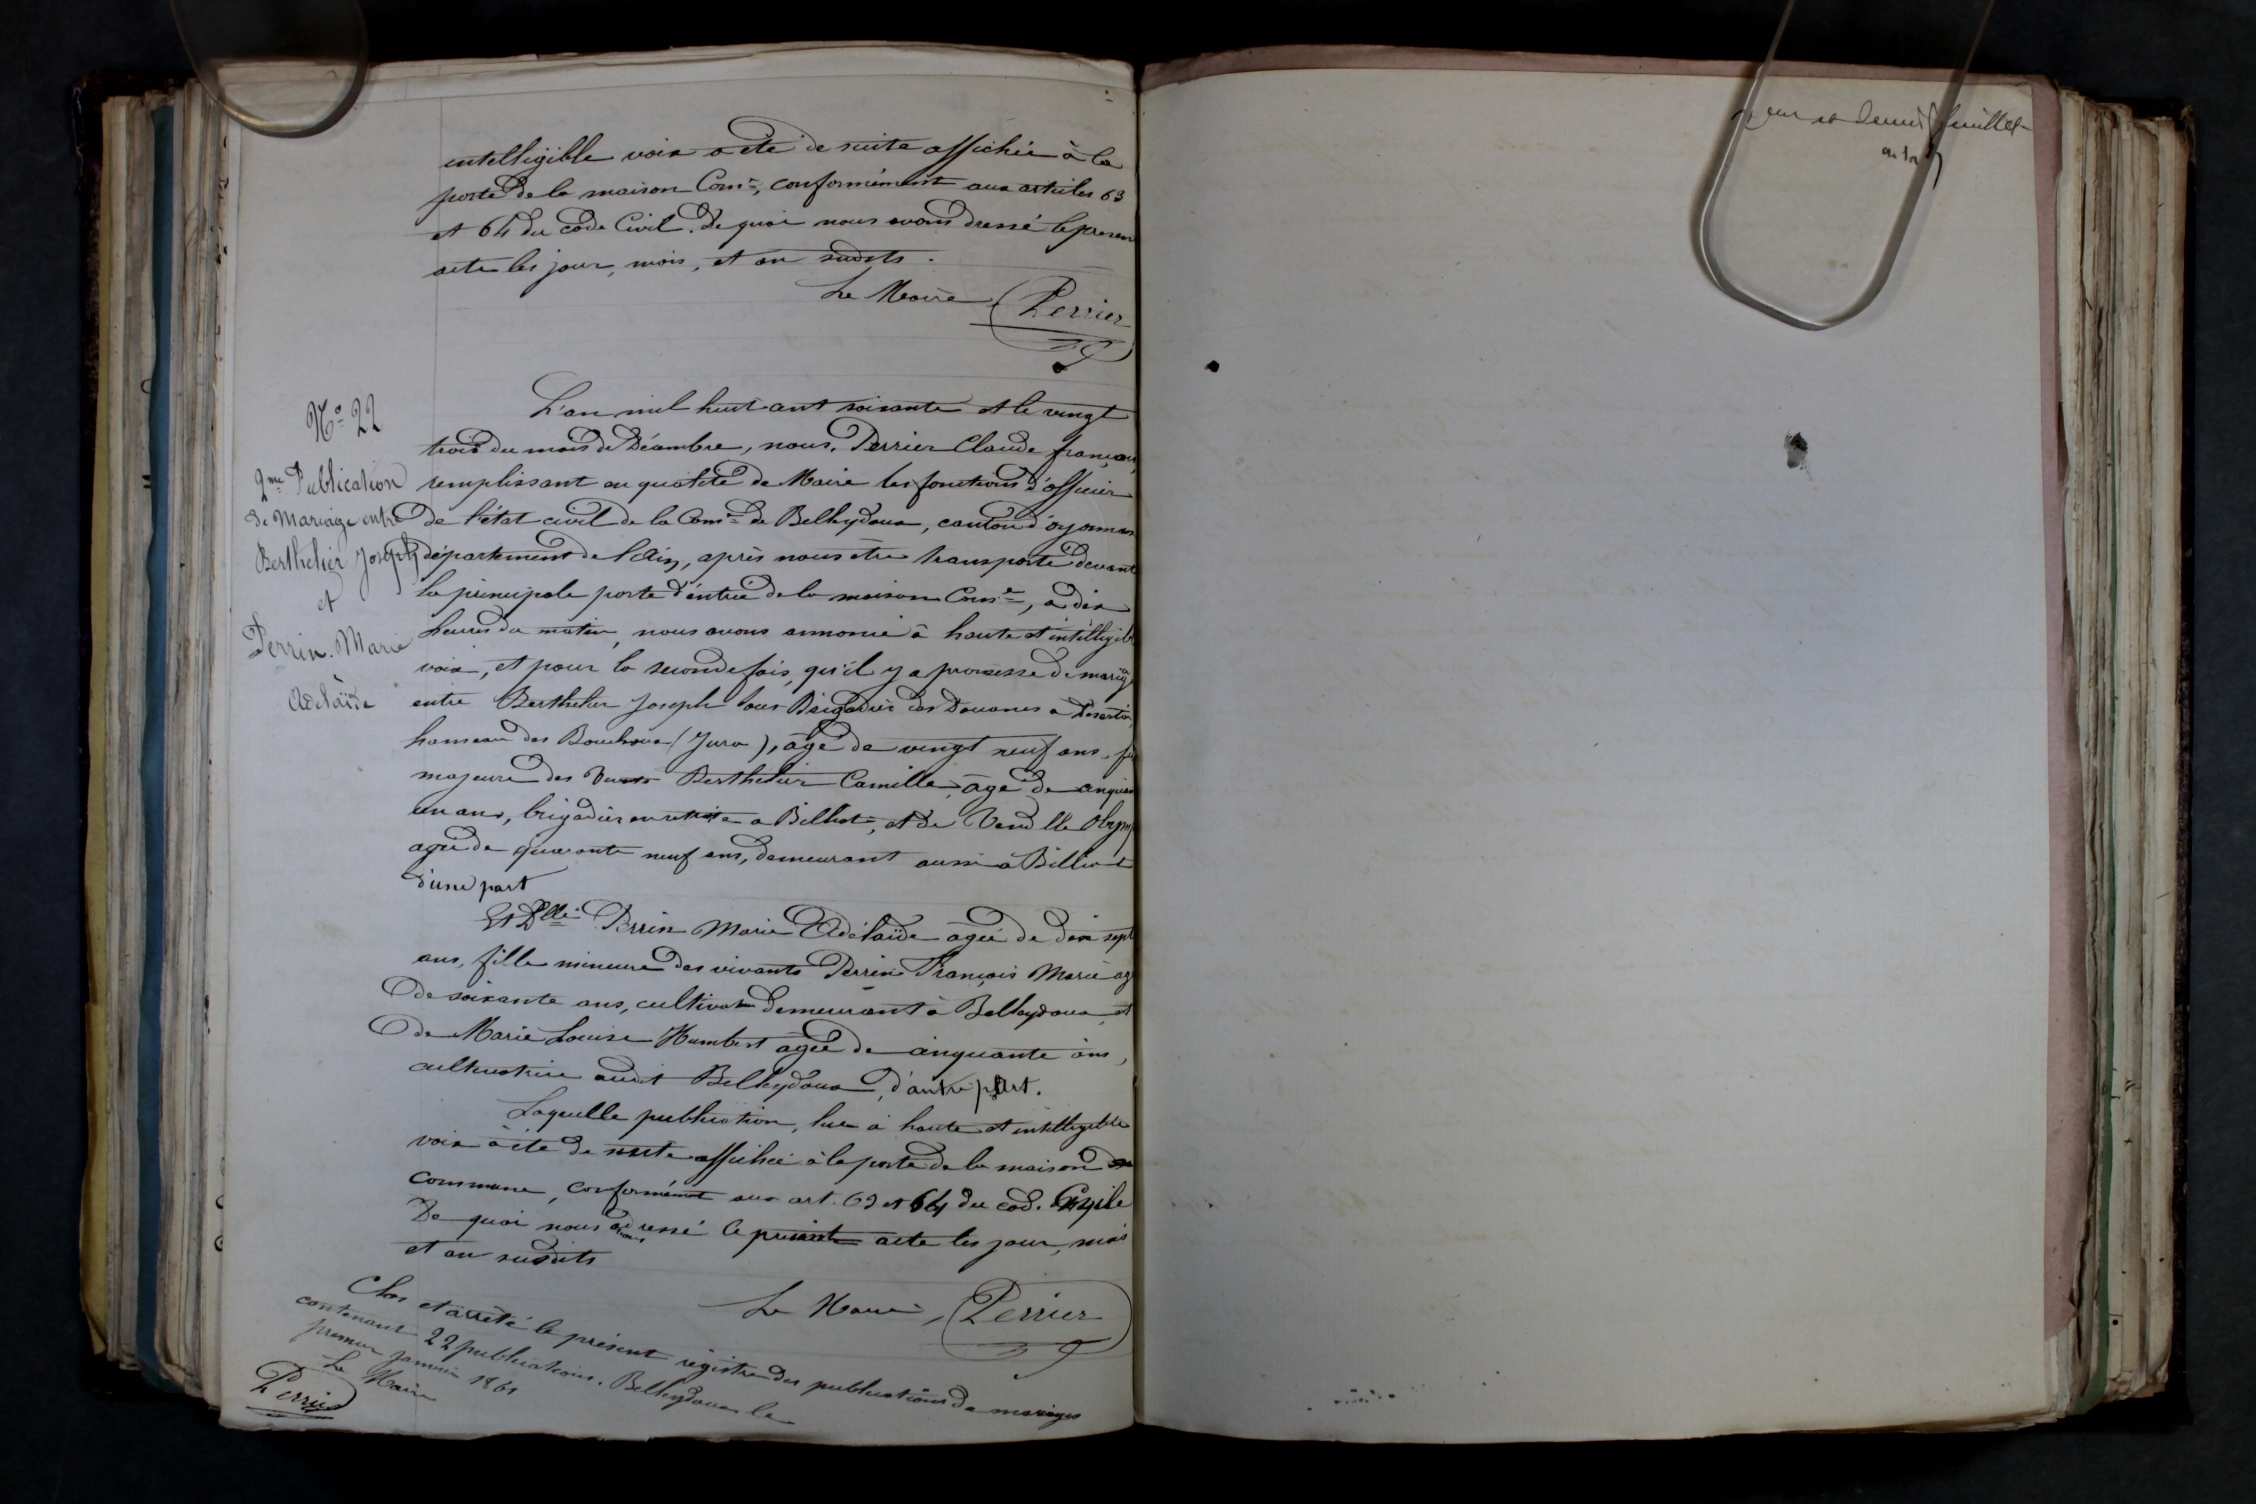 intelligible voix a été de suite affichée à la
porte de la maison Com.ne, conformément aux articles 63
et 64 du code Civil. De quoi nous avons dressé le presen
acte les jour, mois, et an susdits.
Le Maire Perrier
N.o 22
2me Publication
de Mariage entre
Berthelier Joseph
et
Perrin Marie
Adélaïde
L'an mil huit cent soixante et le vingt
trois du mois de Décembre, nous, Perrier Claude françois,
remplissant en qualité de Maire les fonctions d'officier
de l'état civil de la Com.ne de Belleydoux, canton d'oyonnax
département de l'Ain, après nous être transporté devant
la principale porte d'entrée de la maison Com.e, à dix
heures du matin, nous avons annoncé à haute et intelligib
voix, et pour la seconde fois, qu'il y a promesse de mariage
entre Berthelier Joseph sous Brigadier des Douanes a
hameau des Bouchoux (Jura), âgé de vingt neuf ans, fi
majeure des Berthelier Camille, âgé de cinquan
un ans, brigadier en retraite a Billiat, et de Olymp
agée de quarante neuf ans, demeurant aussi à Billiat
d'une part
Et Dlle Perrin Marie Adélaïde agée de dix sept
ans, fille mineure des vivants Perrin François Marie ag
de soixante ans, cultivateur demeurant à Belleydoux, et
de Marie Louise Humbert agée de cinquante ans,
cultivatrice audit Belleydoux, d'autre part.
Laquelle publication, lue à haute et intelligible
voix à été de suite affichée à la porte de la maison
commune, conformément aux art. 63 et 64 du cod. Civile
De quoi nous avons dressé le présent acte les jour, mois
et an susdits
Le Maire, Perrier
Clos et arrêté le présent régistre des publications de mariages
contenant 22 publications. Belleydoux le
premier janvier 1861
Le Maire
Perrier
feuillet